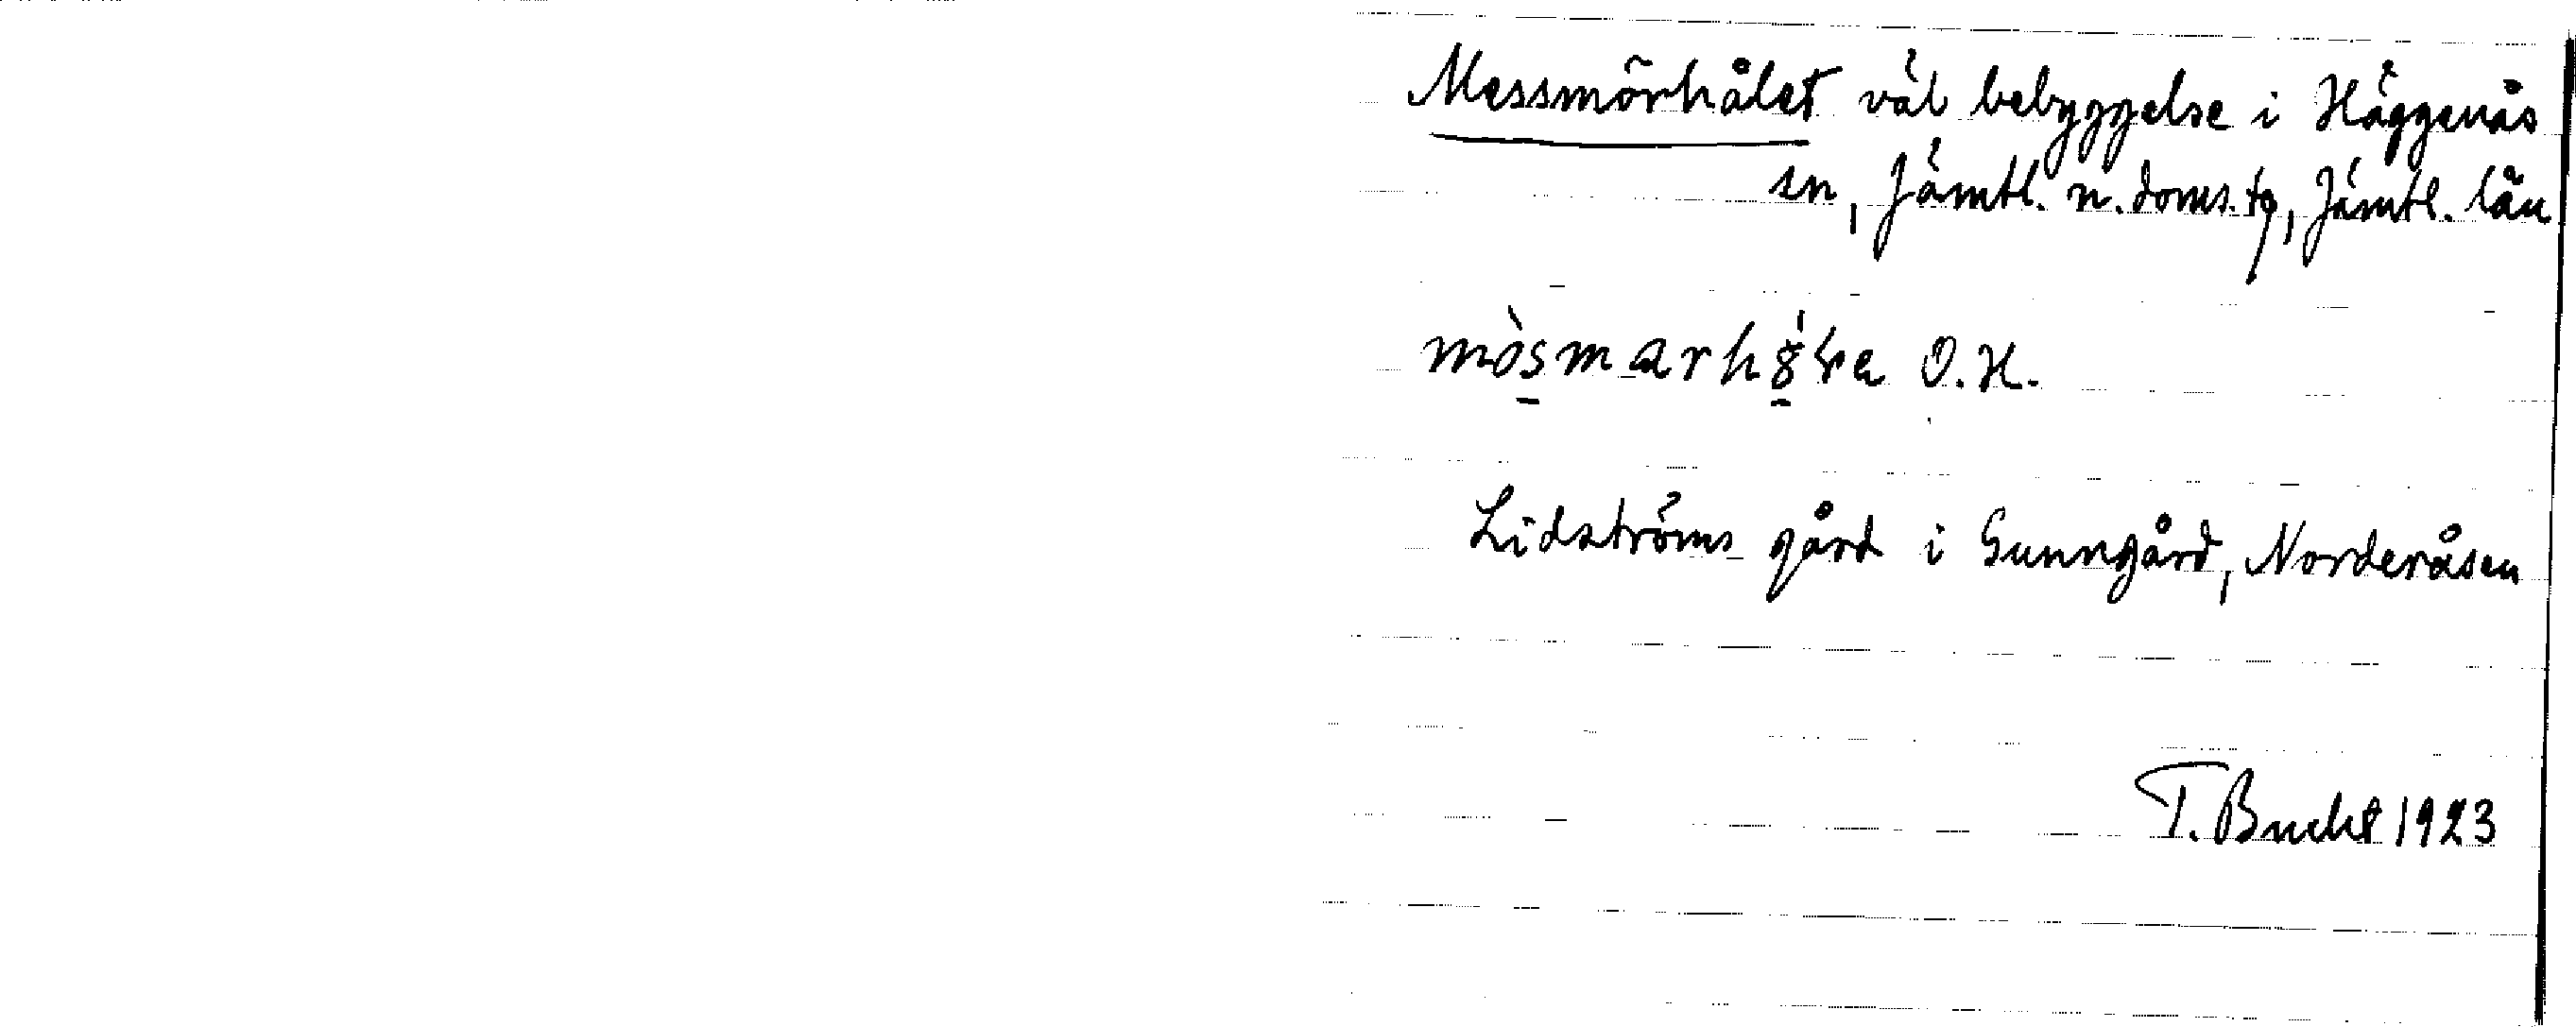 Messmörhålet väl bebyggelse i Häggenås
sn, Jämtl. n. doms.tg, Jämtl. län
O.H.
Lidströms gård i Sunngård, Norderåsen
T. Bucht 1923